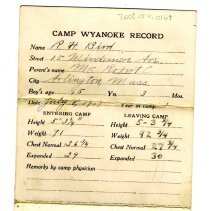 2008.114.0169
CAMP WYANOKE RECORD
Name R. H. Bird
Street 15 Windemere Ave
Parent's name Mr. Robert
City Arlington Mass
Boy's age 15 Yrs. 3 Mos.
Date July 5, Year in camp
ENTERING CAMP LEAVING CAMP
Height 5' 3¼" Height 5-3 ¾
Weight 91 Weight 92 ¾
Chest Normal 26¾ Chest Normal 27¾
Expanded 29 Expanded 30
Remarks by camp physician